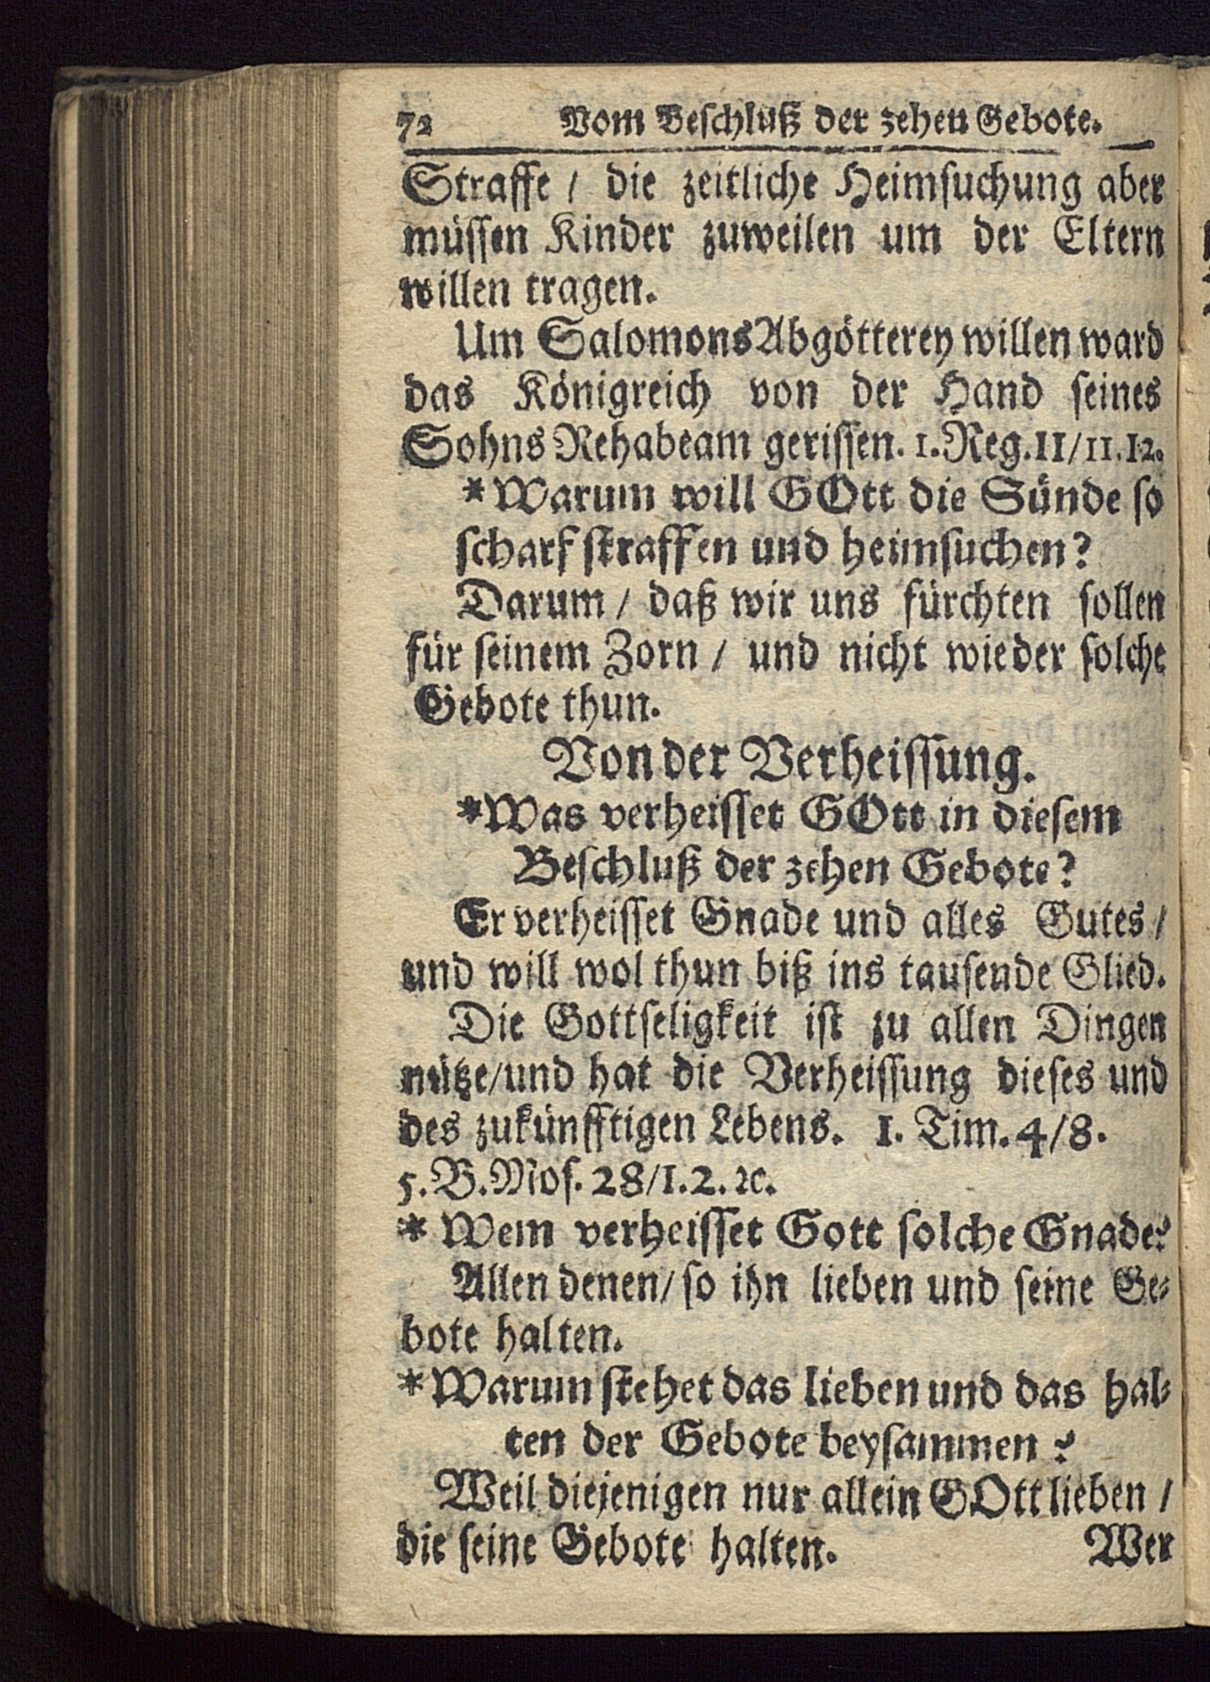 72 Vom Beschluß der zehen Gebote.
Straffe / die zeitliche Heimsuchung aber
müssen Kinder zuweilen um der Eltern
willen tragen.
Um Salomons Abgötterey willen ward
das Königreich von der Hand seines
Sohns Rehabeam gerissen. 1. Reg. 11/11.12.
*Warum will GOtt die Sünde so
scharf straffen und heimsuchen?
Darum / daß wir uns fürchten sollen
für seinem Zorn / und nicht wieder solche
Gebote thun.
Von der Verheissung.
*Was verheisset GOtt in diesem
Beschluß der zehen Gebote?
Er verheisset Gnade und alles Gutes /
und will wol thun biß ins tausende Glied.
Die Gottseligkeit ist zu allen Dingen
nütze/und hat die Verheissung dieses und
des zukünfftigen Lebens. 1. Tim. 4/8.
5. B. Mos. 28/1.2. ꝛc.
* Wem verheisset Gott solche Gnade?
Allen denen/ so ihn lieben und seine Ge-
bote halten.
*Warum stehet das lieben und das hal-
ten der Gebote beysammen?
Weil diejenigen nur allein GOtt lieben /
die seine Gebote halten. Wer